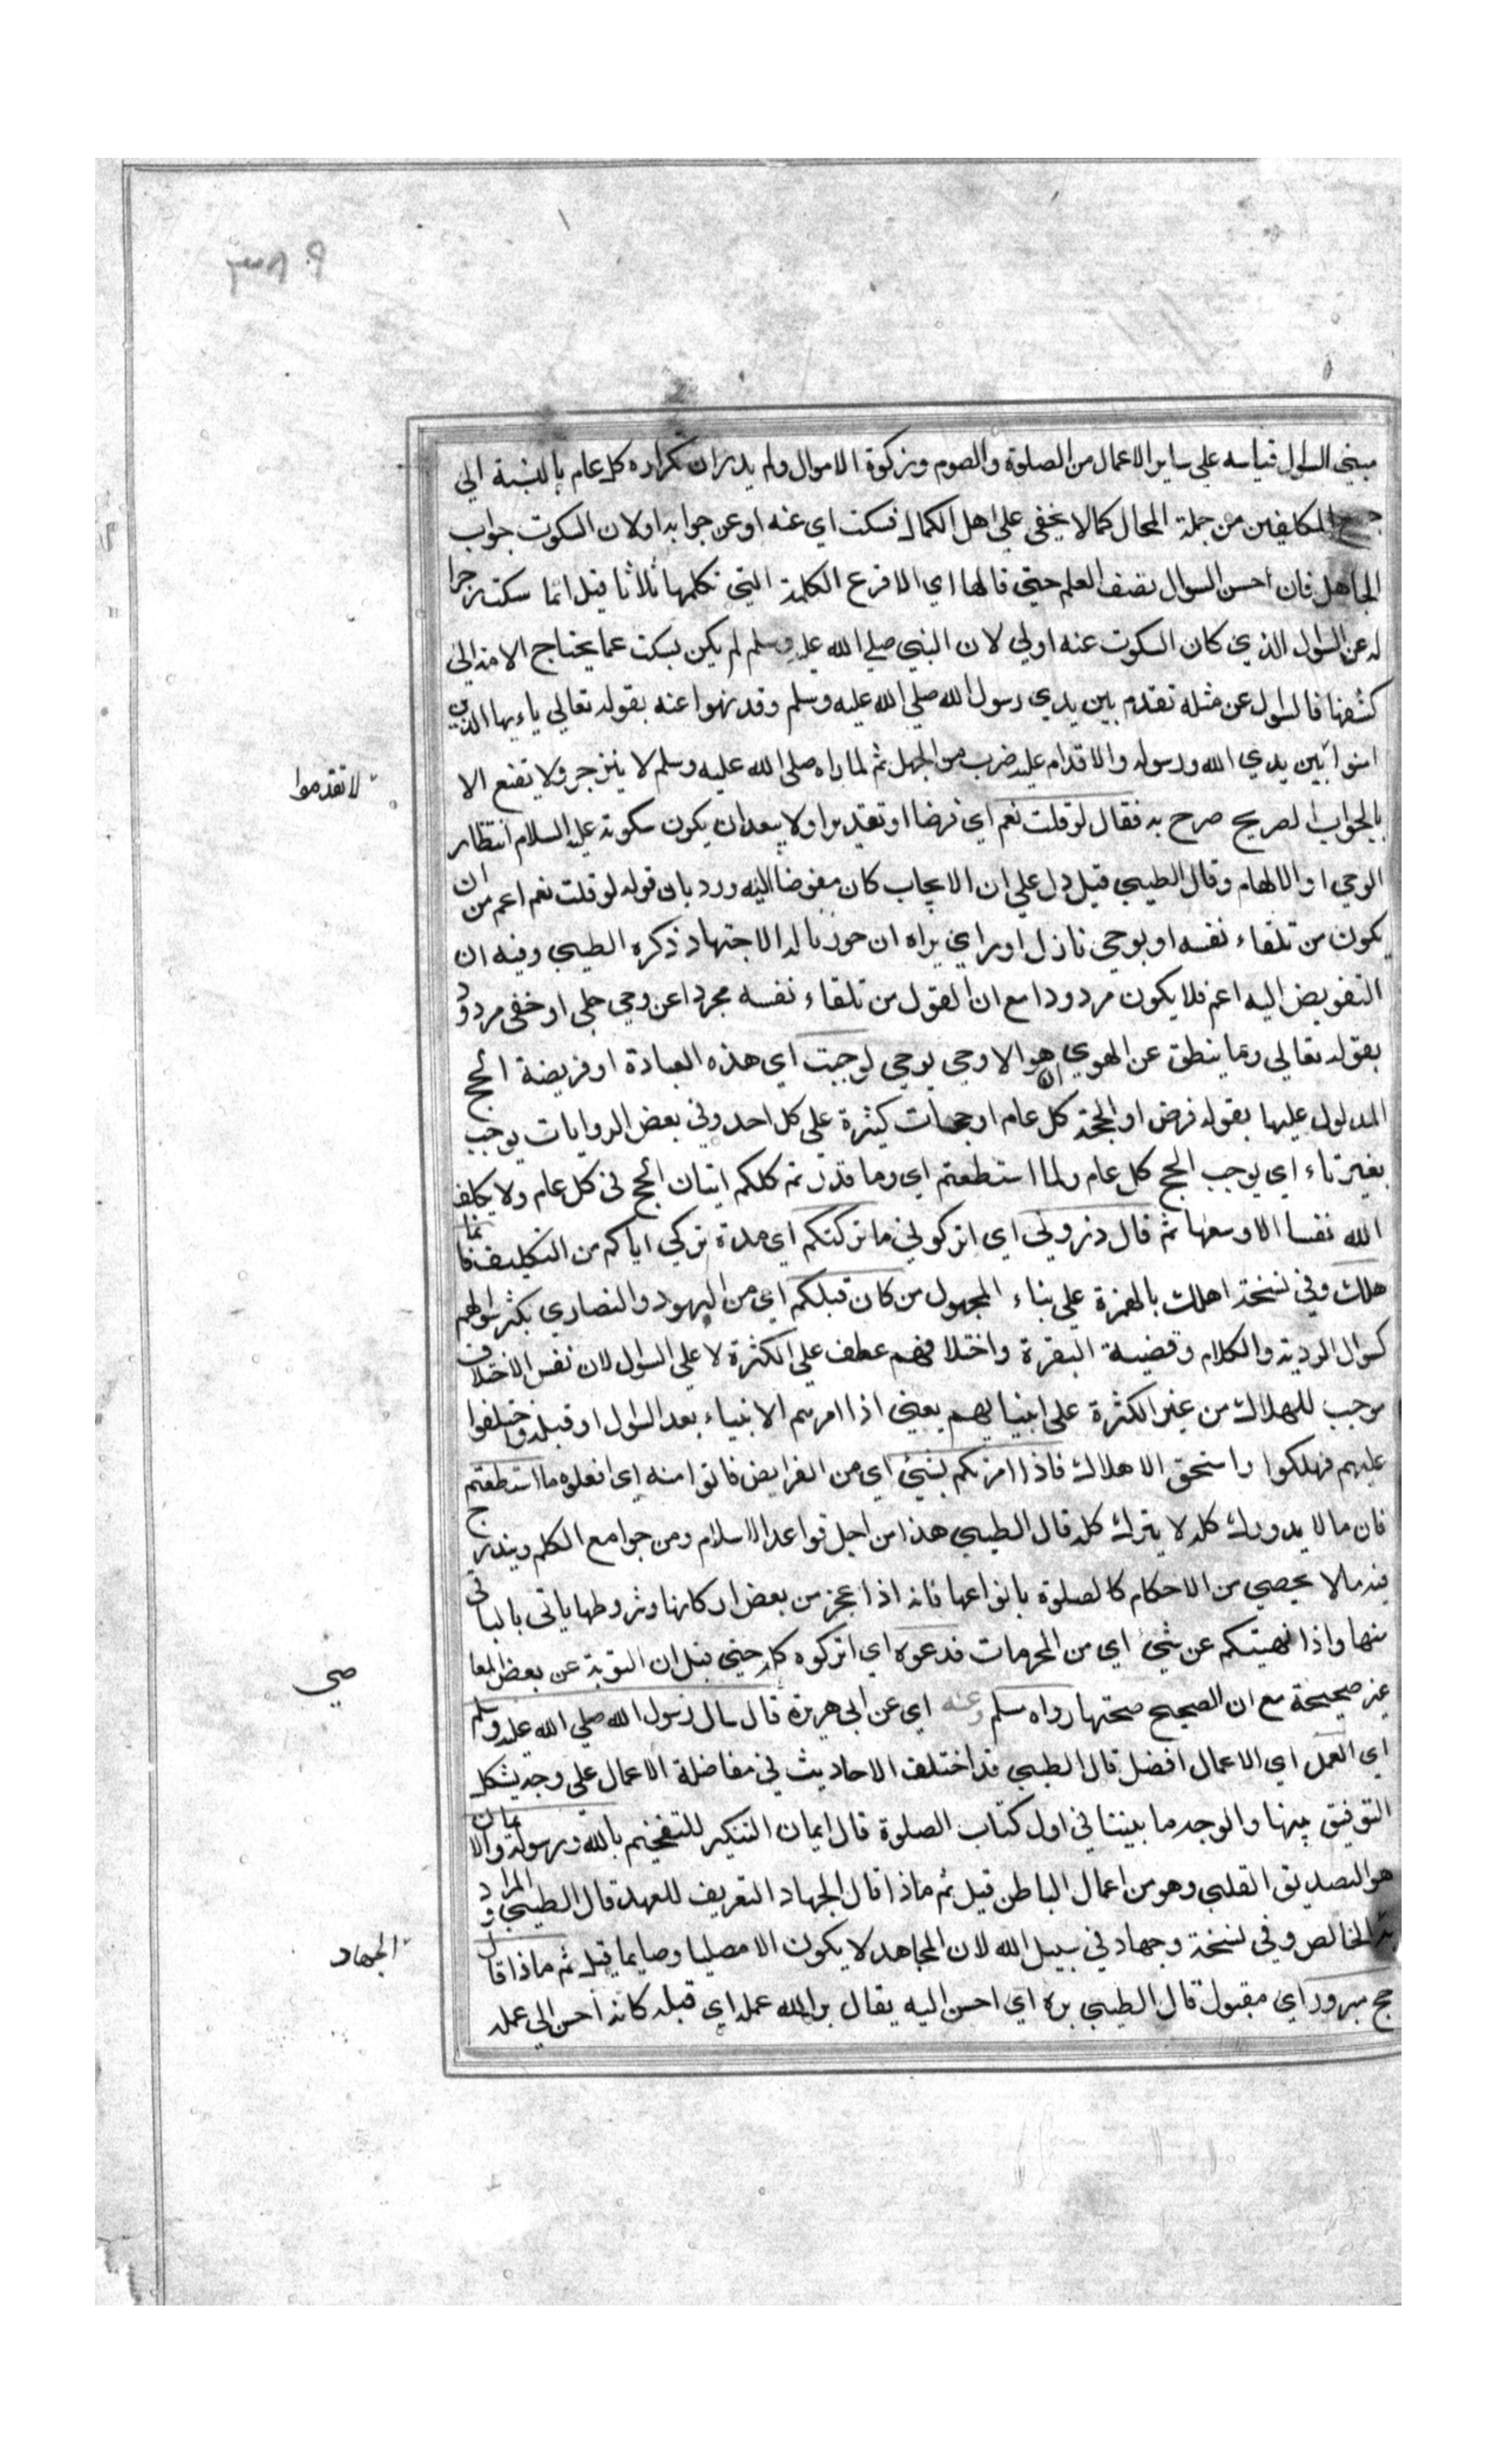 مبني السؤال قياسه علي ساير الاعمال من الصلوة والصوم وزكوة الاموال ولم يدر ان تكراره كل عام بالنسبة الي
جميع المكلفين من جملة المحال كما لا يخفي علي اهل الكمال فسكت اي عنه او عن جوابه اولان السكوت جواب
الجاهل فان احسن السوال نصف العلم حتي قالها اي الاقرع الكلمة التي تكلمها ثلاثا قيل انما سكت زجرا
له عن السوال الذي كان السكوت عنه اولي لان النبي صلي الله عليه وسلم لم يكن يسكت عما يحتاج الامة الي
كشفها فالسوال عن مثله تقدم بين يدي رسول الله صلي الله عليه وسلم وقد نهوا عنه بقوله تعالي ياءيها الذين
امنوا بين يدي الله ورسوله والاقدام عليه ضرب من الجهل ثم لما راه صلي الله عليه وسلم لا ينزجر ولا يقنع الا
لا تقدموا
بالجواب الصريح صرح به فقال لو قلت نعم اي فرضا او تقديرا ولا يبعد ان يكون سكوته عليه السلام انتظار
الوحي او الالهام وقال الطيبي قيل دل علي ان الايجاب كان مفوضا اليه ورد بان قوله لو قلت نعم اعم من ان
يكون من تلقاء نفسه او بوحي نازل او راي يراه ان جوزنا له الاجتهاد ذكره الطيبي وفيه ان
التفويض اليه اعم فلا يكون مردودا مع ان القول من تلقاء نفسه مجردا عن وحي جلي او خفي مردود
بقوله تعالي وما ينطق عن الهوي ان هو الا وحي يوحي لوجبت اي هذه العبادة او فريضة الحج
المدلول عليها بقوله فرض او الحجة كل عام او حجات كثيرة علي كل احد وفي بعض الروايات لوجب
بغير تاء اي لوجب الحج كل عام ولما استطعتم اي وما قدرتم كلكم اتيان الحج في كل عام ولا يكلف
الله نفسا الا وسعها ثم قال ذروني اي اتركوني ما تركتكم اي مدة تركي اياكم من التكليف فانما
هلك وفي نسخة اهلك بالهمزة علي بناء المجهول من كان قبلكم اي من اليهود والنصاري بكثرة سوالهم
كسوال الروية والكلام وقضية البقرة واختلافهم عطف علي الكثرة لا علي السوال لان نفس الاختلاف
موجب للهلاك من غير الكثرة علي انبيايهم يعني اذا امرهم الانبياء بعد السوال او قبله واختلفوا
عليهم فهلكوا واستحق الاهلاك فاذا امرتكم بشيء اي من الفرايض فاتوا منه اي افعلوه ما استطعتم
فان ما لا يدرك كله لا يترك كله قال الطيبي هذا من اجل قواعد الاسلام ومن جوامع الكلم ويندرج
فيه ما لا يحصي من الاحكام كالصلوة بانواعها فانه اذا عجز من بعض اركانها وشروطها ياتي بالباقي
منها واذا نهيتكم عن شيء اي من المحرمات فدعوه اي اتركوه كله حتي قيل ان التوبة عن بعض المعا
صي
غير صحيحة مع ان الصحيح صحتها رواه مسلم وعنه اي عن ابي هريرة قال سال رسول الله صلي الله عليه وسلم
اي العمل اي الاعمال افضل قال الطيبي قد اختلف الاحاديث في مفاضلة الاعمال علي وجه يشكل
التوفيق بينها والوجه ما بيننا في اول كتاب الصلوة قال ايمان التنكير للتفخيم بالله ورسوله والايمان
هو التصديق القلبي وهو من اعمال الباطن قيل ثم ماذا قال الجهاد التعريف للعهد قال الطيبي والمراد
به الخالص وفي نسخة وجهاد في سبيل الله لان المجاهد لا يكون الا مصليا وصايما قيل ثم ماذا قال
الجهاد
حج مبرور اي مقبول قال الطيبي بره اي احسن اليه يقال بر الله عمله اي قبله كانه احسن الي عمله